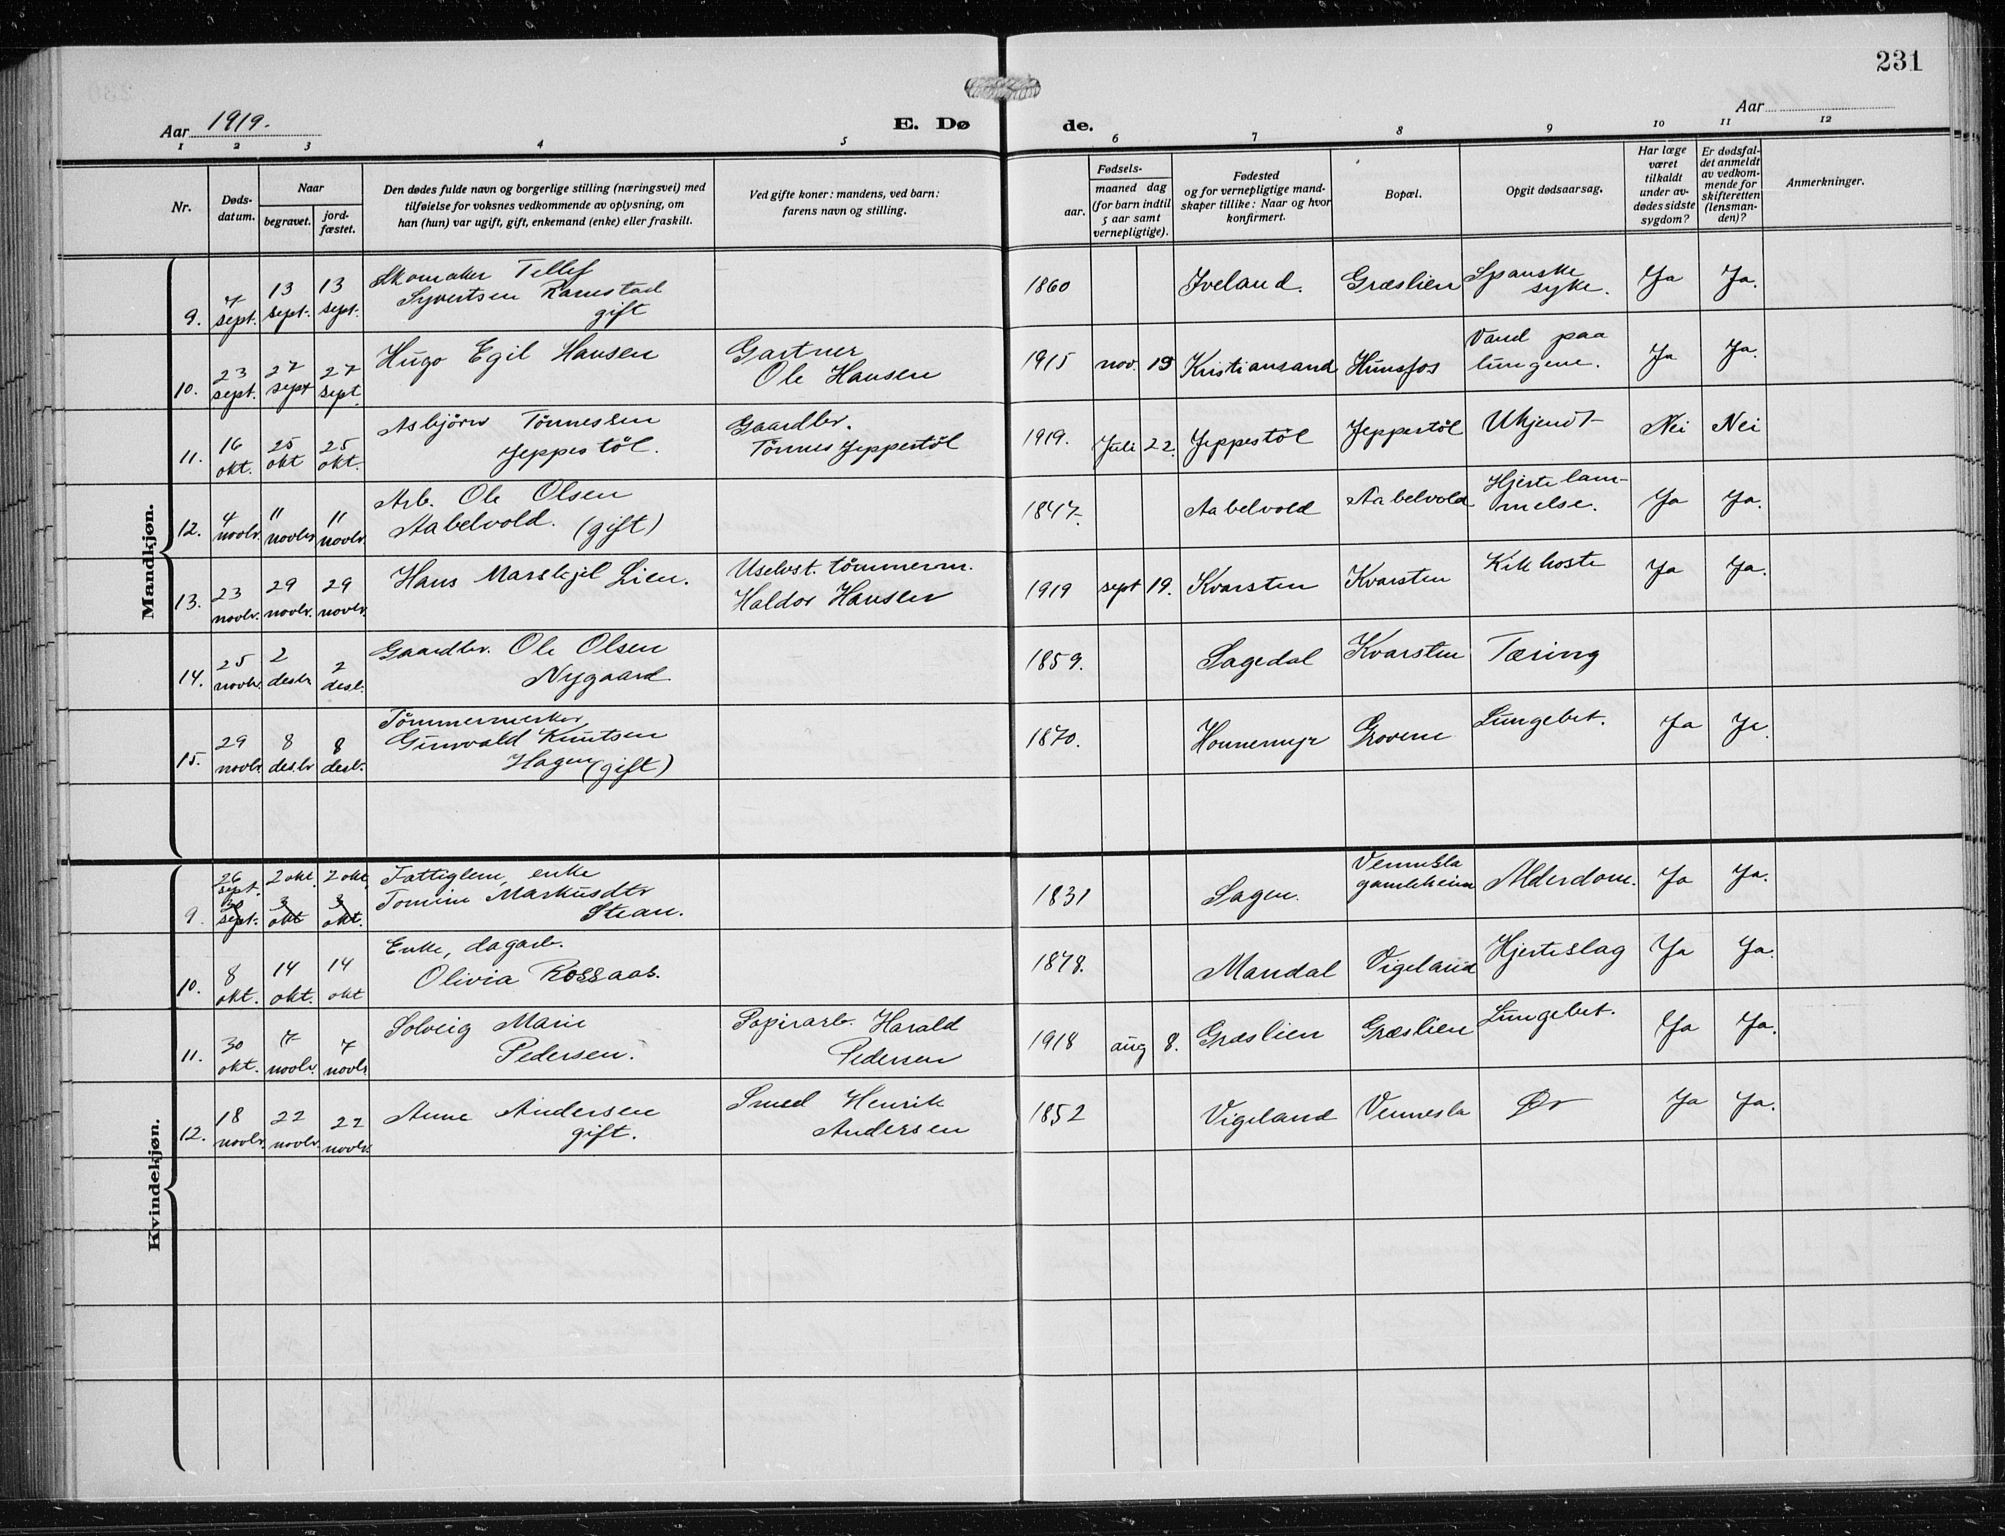 231
Aar 1919.
E. Dø de.
Aar
1 2 3 4 5 6 7 8 9 10 11 12
Nr.
Døds-
datum.
Naar
begravet.
jord-
fæstet.
Den dødes fulde navn og borgerlige stilling (næringsvei) med
tilføielse for voksnes vedkommende av oplysning, om
han (hun) var ugift, gift, enkemand (enke) eller fraskilt.
Ved gifte koner: mandens, ved barn:
farens navn og stilling.
Fødsels-
aar.
maaned dag
(for barn indtil
5 aar samt
vernepligtige).
Fødested
og for vernepligtige mand-
skaper tillike: Naar og hvor
konfirmert.
Bopæl.
Opgit dødsaarsag.
Har læge
været
tilkaldt
under av-
dødes sidste
sygdom?
Er dødsfal-
det anmeldt
av vedkom-
mende for
skifteretten
(lensman-
den)?
Anmerkninger.
Mandkjøn.
9. 7 sept. 13 sept. 13 sept.
Skomaker Tellef
Syvertsen Ramstad
gift
1860 Iveland. Græslien Spanske
syke. Ja Ja.
10. 23 sept. 27 sept 27 sept.
Hugo Egil Hansen
Gartner
Ole Hansen
1915 nov. 19 Kristiansand Hunsfos Vand paa
lungene. Ja Ja.
11. 16 okt. 25 okt 25 okt.
Asbjørn Tønnessen
Jeppestøl.
Gaardbr.
Tønnes Jeppestøl
1919. Juli 22. Jeppestøl Jeppestøl Ukjendt Nei Nei
12. 4 novbr. 11 novbr 11 novbr.
Arb. Ole Olsen
Aabelvold. (gift)
1847. Aabelvold Aabelvold Hjertelam-
melse. Ja Ja.
13. 23 novbr. 29 novbr. 29 novbr.
Hans Marskjel Lien.
Uselvst. tømmerm.
Haldor Hansen
1919 sept 19. Kvarsten Kvarsten Kikhoste Ja Ja.
14. 25 novbr. 2 desbr 2 desb.
Gaardbr. Ole Olsen
Nygaard
1859. Sagedal Kvarsten Tæring
15. 29 novbr 8 desbr 8 desb.
Tømmermerker
Gunvald Knutsen
Hagen (gift)
1870. Honnemyr Grovene Lungebet. Ja Ja.
Kvindekjøn.
26 sept. 2 okt. 2 okt.
9. 30 sept. 3 okt 3 okt.
Fattiglem, enke
Tomine Markusdtr
Stean.
1831 Sagen. Vennesla
gamleheim Alderdom. Ja Ja.
10. 8 okt. 14 okt. 14 okt
Enke, dagarb.
Olivia Rossaas.
1878. Mandal Vigeland Hjerteslag Ja Ja.
11. 30 okt. 7 novbr. 7 novbr
Solveig Marie
Pedersen.
Papirarb. Harald
Pedersen
1918 aug 8. Græslien Græslien Lungebet. Ja Ja.
12. 18 novbr. 22 novbr. 22 novbr.
Anne Andersen
gift.
Smed Henrik
Andersen
1852 Vigeland Vennesla Ør Ja Ja.